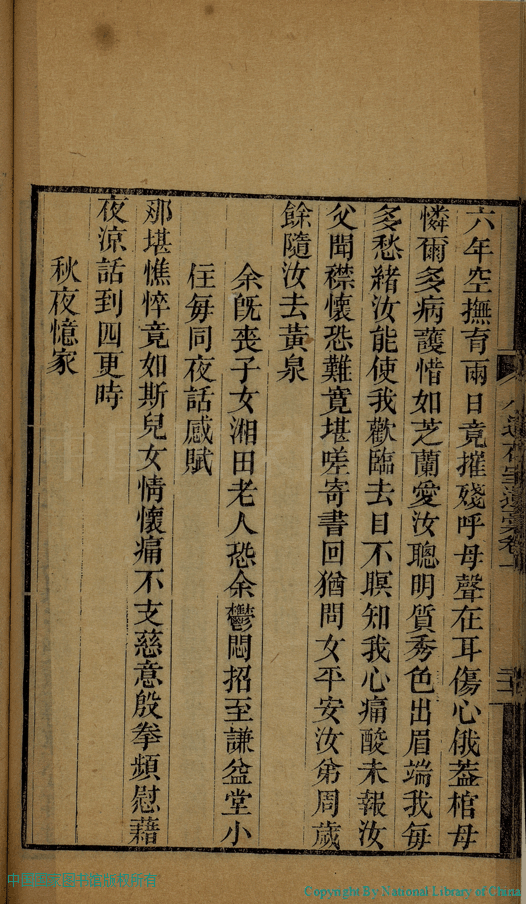 六年空撫育兩日竟摧殘呼母聲在耳傷心俄葢棺母
憐爾多病護惜如芝蘭愛汝聰明質秀色出眉端我每
多愁緒汝能使我歡臨去目不瞑知我心痛酸未報汝
父聞襟懷恐難寬堪嗟寄書回猶問女平安汝弟周歲
餘隨汝去黃泉
余旣喪子女湘田老人恐余鬱悶招至謙益堂小
住每同夜話感賦
那堪憔悴竟如斯兒女情懷痛不支慈意殷拳頻慰藉
夜涼話到四更時
秋夜憶家
中国国家图书馆版权所有
Copyright By National Library of China